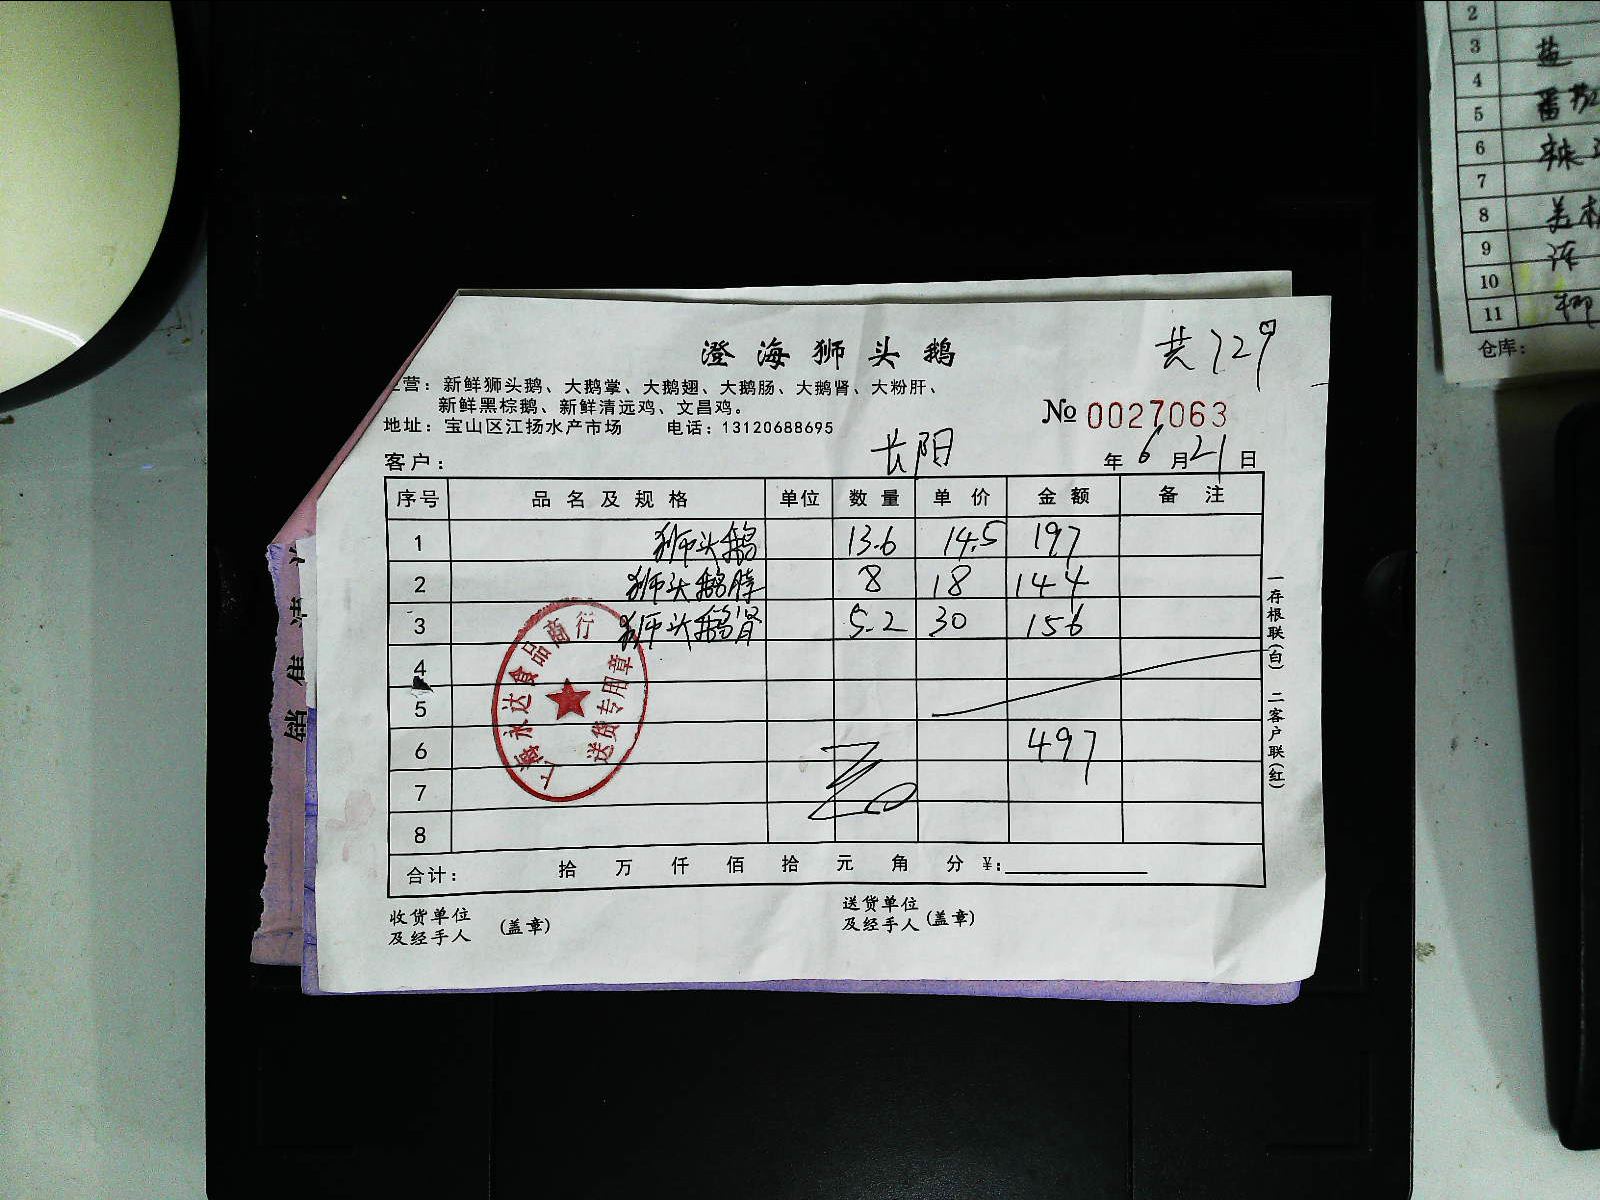 澄海狮头鹅
共729
营：新鲜狮头鹅、大鹅掌、大鹅翅、大鹅肠、大鹅肾、大粉肝、
新鲜黑棕鹅、新鲜清远鸡、文昌鸡。
№ 0027063
地址：宝山区江扬水产市场 电话：13120688695
客户： 长阳 年6月21日
序号 品名及规格 单位 数量 单价 金额 备注
1 狮头鹅 13.6 14.5 197
2 狮头鹅脖 8 18 144
3 狮头鹅肾 5.2 30 156
4
5
6 497
7
8
合计： 拾 万 仟 佰 拾 元 角 分 ¥：
收货单位
及经手人 (盖章)
送货单位
及经手人 (盖章)
一存根联(白) 二客户联(红)
上海永达食品商行
送货专用章
2
3 盐
4
5
6
7
8
9
10
11
仓库：